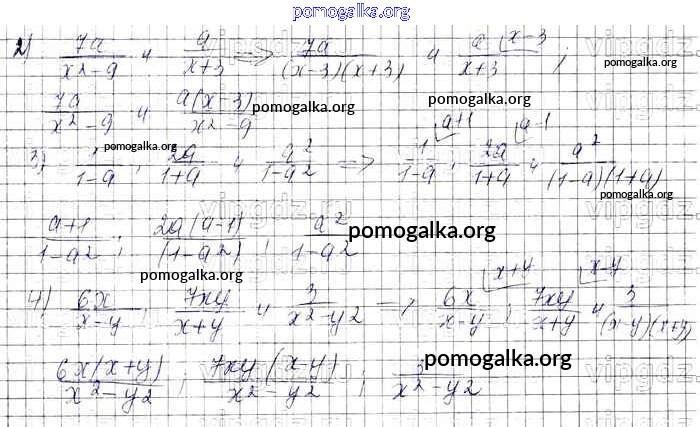 pomogalka.org
2) 7a/(x²-9) и a/(x+3) => 7a/((x-3)(x+3)) и a/(x+3) x-3 ;
7a/(x²-9) и a(x-3)/(x²-9) pomogalka.org pomogalka.org
pomogalka.org
3) /(1-a) ; 2a/(1+a) и a²/(1-a²) => 1/(1-a) a+1 ; 2a/(1+a) a-1 и a²/((1-a)(1+a))
pomogalka.org
(a+1)/(1-a2) ; 2a(a-1)/(1-a2) ; a²/(1-a2) pomogalka.org
pomogalka.org
4) 6x/(x-y) ; 7xy/(x+y) и 3/(x²-y2) => 6x/(x-y) x+y ; 7xy/(x+y) x-y и 3/((x-y)(x+y))
6x(x+y)/(x²-y2) ; 7xy(x-y)/(x²-y2) ; 3/(x²-y2) pomogalka.org